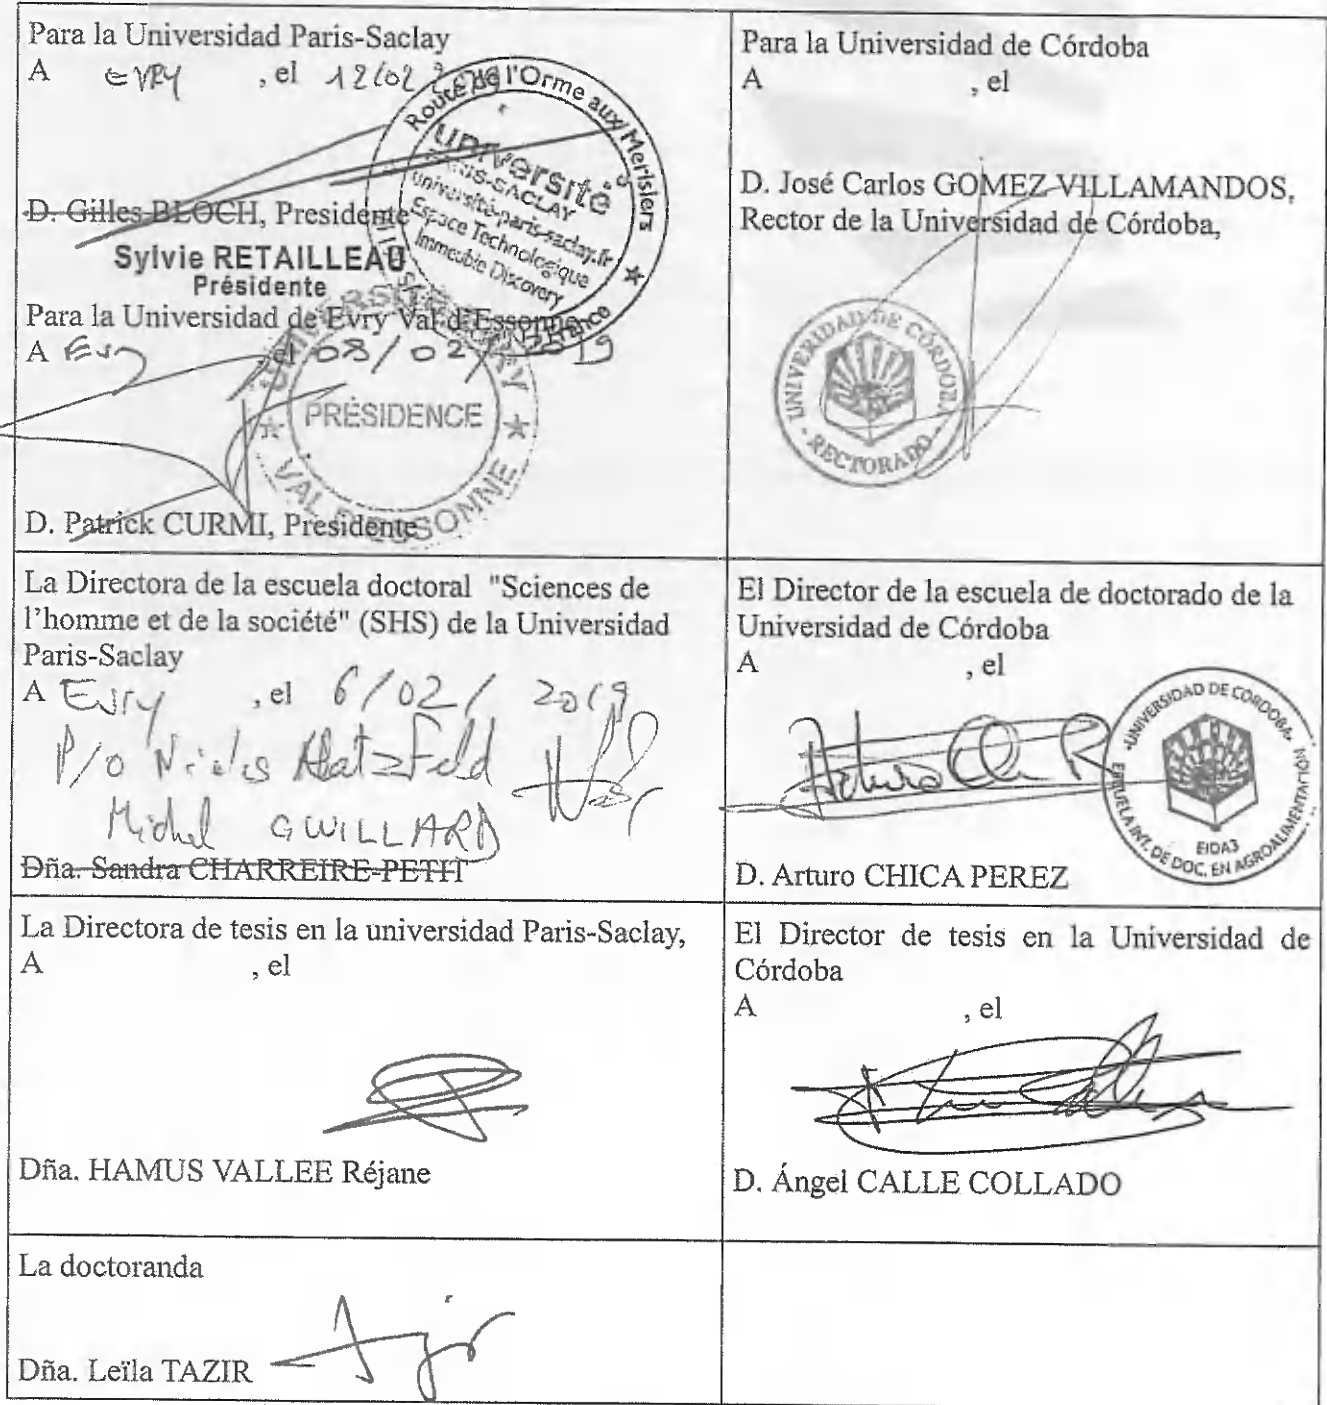 Para la Universidad Paris-Saclay
A EVRY , el 12/02
Route de l'Orme aux Merisiers
université
PARIS-SACLAY
universite-paris-saclay.fr
Espace Technologique
Immeuble Discovery
France
D. Gilles BLOCH, Presidente
Sylvie RETAILLEAU
Présidente
Para la Universidad de Evry Val d'Essonne
A Evry , el 08/02/2019
PRÉSIDENCE
VAL D'ESSONNE
D. Patrick CURMI, Presidente
Para la Universidad de Córdoba
A , el
D. José Carlos GOMEZ VILLAMANDOS,
Rector de la Universidad de Córdoba,
UNIVERSIDAD DE CÓRDOBA
- RECTORADO -
La Directora de la escuela doctoral "Sciences de
l'homme et de la société" (SHS) de la Universidad
Paris-Saclay
A Evry , el 6/02/ 2019
P/o Nicolas Hatzfeld
Michel GUILLARD
Dña. Sandra CHARREIRE-PETIT
El Director de la escuela de doctorado de la
Universidad de Córdoba
A , el
UNIVERSIDAD DE CORDOBA
ESCUELA INT. DE DOC. EN AGROALIMENTACIÓN
EIDA3
D. Arturo CHICA PEREZ
La Directora de tesis en la universidad Paris-Saclay,
A , el
Dña. HAMUS VALLEE Réjane
El Director de tesis en la Universidad de
Córdoba
A , el
D. Ángel CALLE COLLADO
La doctoranda
Dña. Leïla TAZIR